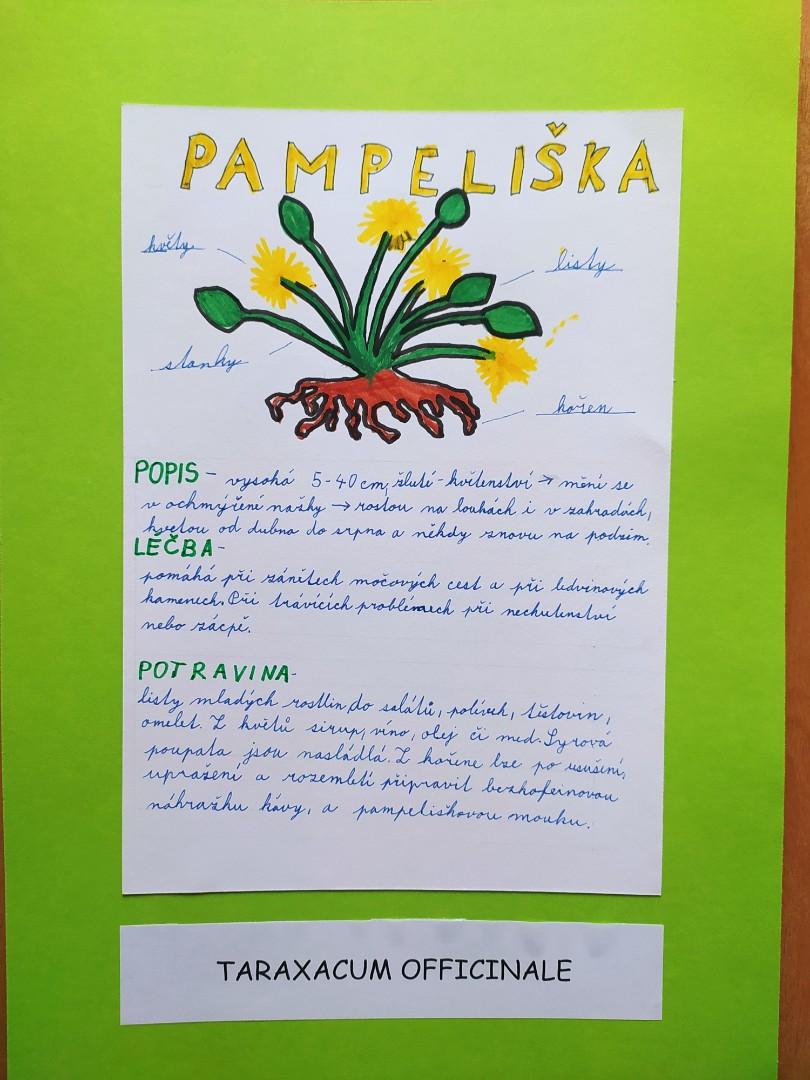 PAMPELIŠKA
květy
listy
stonky
kořen
POPIS - vysoká 5-40cm, žluté - květenství → mění se
v ochmýřené nažky → rostou na loukách i v zahradách,
kvetou od dubna do srpna a někdy znovu na podzim.
LÉČBA -
pomáhá při zánětech močových cest a při ledvinových
kamenech. Při trávících problémech při nechutenství
nebo zácpě.
POTRAVINA-
listy mladých rostlin do salátů, polívek, těstovin,
omelet. Z květů sirup, víno, olej či med. Syrová
poupata jsou nasládlá. Z kořene lze po usušení,
upražení a rozemletí připravit bezkofeinovou
náhražku kávy, a pampeliškovou mouku.
TARAXACUM OFFICINALE